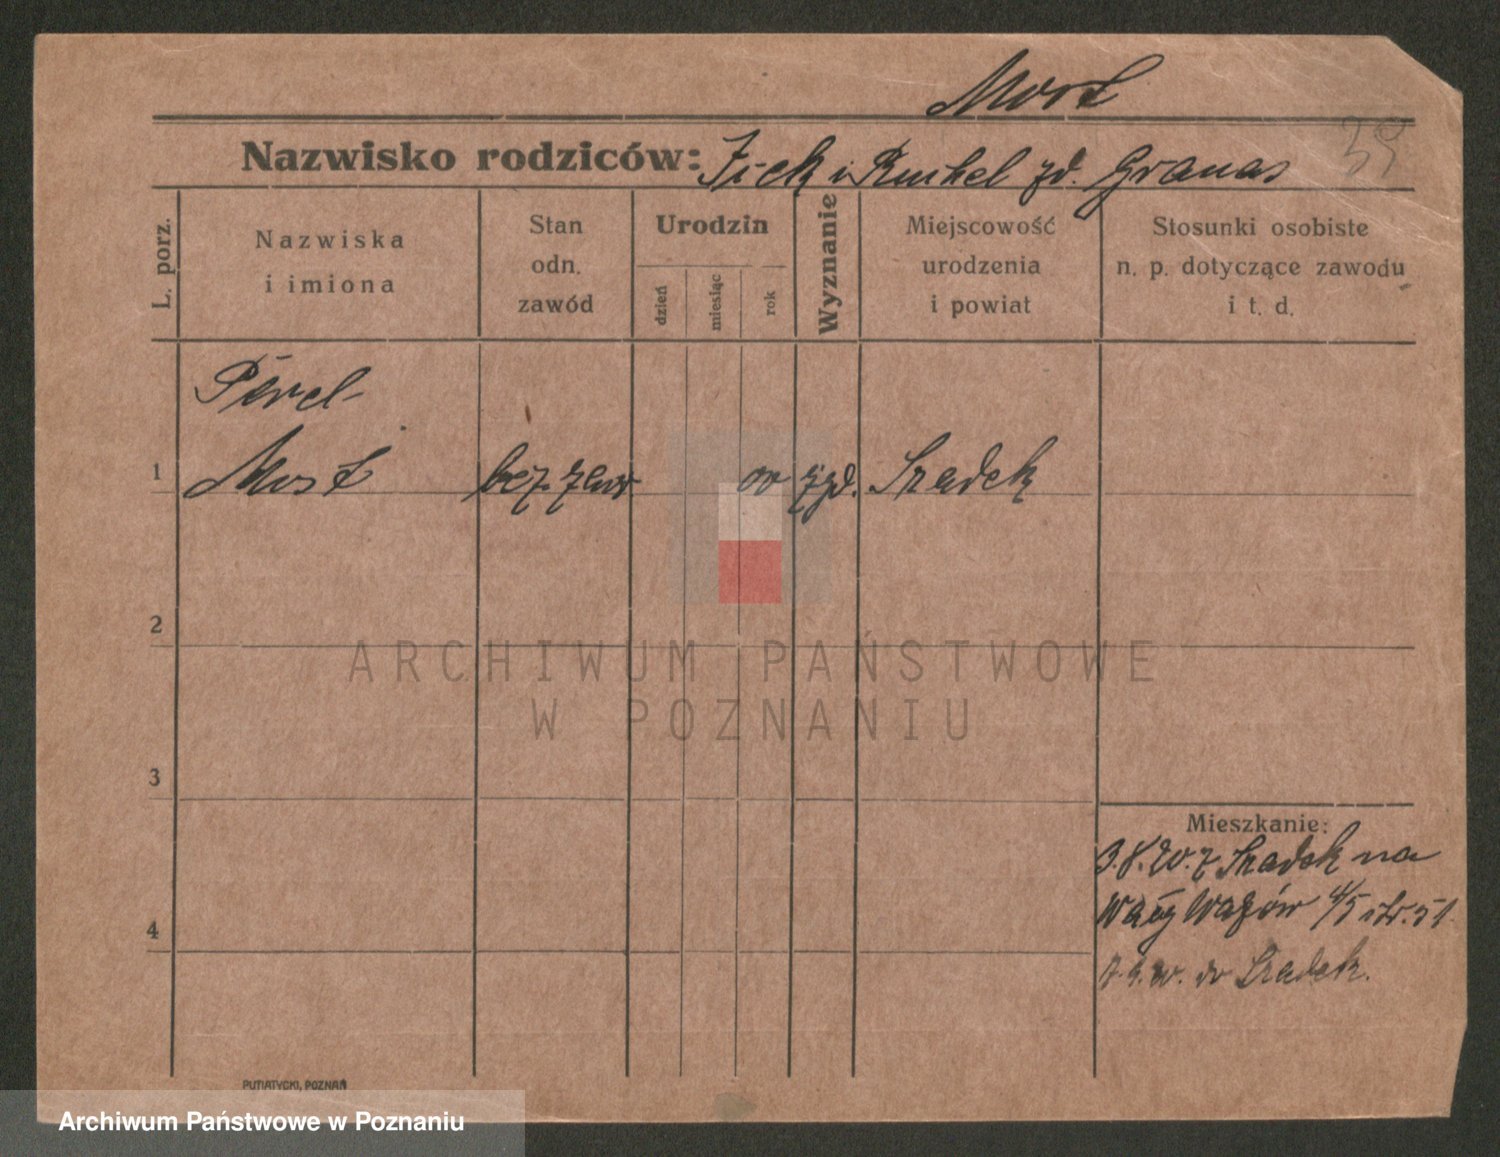 Most
Nazwisko rodziców: Icek i Ruchel zd. Granas
39
L. porz.
Nazwiska
i imiona
Stan
odn.
zawód
Urodzin
dzień
miesiąc
rok
Wyznanie
Miejscowość
urodzenia
i powiat
Stosunki osobiste
n. p. dotyczące zawodu
i t. d.
Perel
1 Most bez zaw żyd. Szadek
2
3
4
Mieszkanie:
z Szadek na
4/5 51
do Szadek.
PUTIATYCKI, POZNAŃ
ARCHIWUM PAŃSTWOWE
W POZNANIU
Archiwum Państwowe w Poznaniu